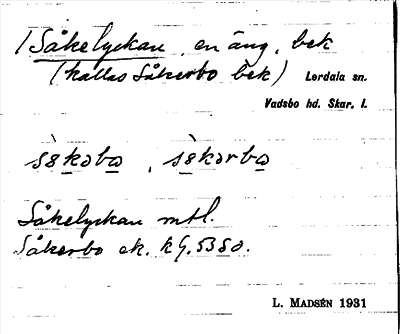 / Såkelyckan, en äng, bek
(kallas Såkerbo bek) Lerdala sn.
Vadsbo hd. Skar. l.
Såkelyckan mtl.
Såkerbo ek. kG. 5350.
L. MADSÉN 1931